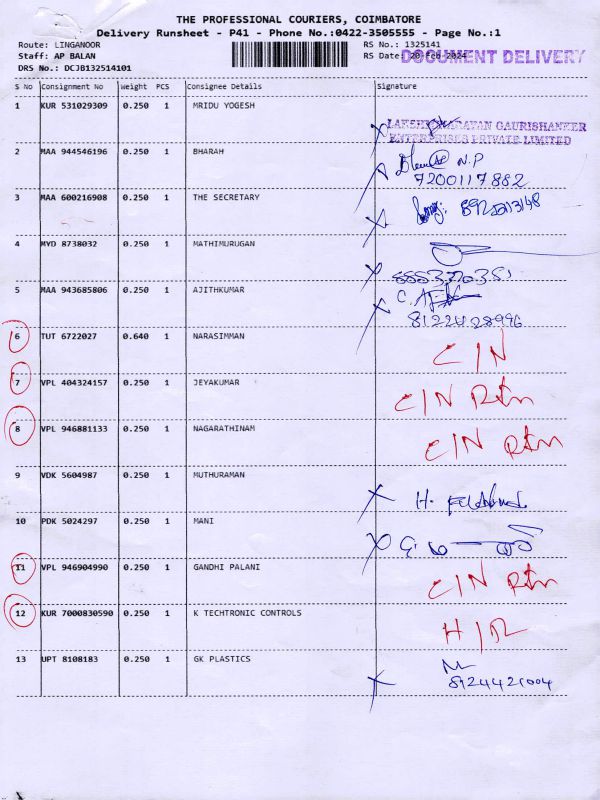 THE PROFESSIONAL COURIERS, COIMBATORE
Delivery Runsheet - P41 - Phone No.:0422-3505555 - Page No.:1
Route: LINGANOOR RS No.: 1325141
Staff: AP BALAN RS Date: 20-Feb-2024 DOCUMENT DELIVERY
DRS No.: DCJB132514101
S No Consignment No Weight PCS Consignee Details Signature
1 KUR 531029309 0.250 1 MRIDU YOGESH
GAURISHANKER
ENTERPRISES PRIVATE LIMITED
2 MAA 944546196 0.250 1 BHARAH N.P
7200117882
3 MAA 600216908 0.250 1 THE SECRETARY
4 MYD 8738032 0.250 1 MATHIMURUGAN
5 MAA 943685806 0.250 1 AJITHKUMAR
8122428996
6 TUT 6722027 0.640 1 NARASIMMAN C/N
7 VPL 404324157 0.250 1 JEYAKUMAR C/N Rtn
8 VPL 946881133 0.250 1 NAGARATHINAM C/N Rtn
9 VDK 5604987 0.250 1 MUTHURAMAN
10 PDK 5024297 0.250 1 MANI
11 VPL 946904990 0.250 1 GANDHI PALANI C/N Rtn
12 KUR 7000830590 0.250 1 K TECHTRONIC CONTROLS
13 UPT 8108183 0.250 1 GK PLASTICS
8124421004